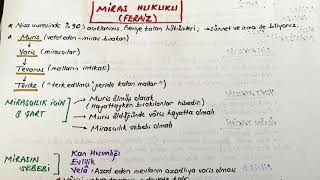 MİRAS HUKUKU
(FERAİZ)
* Nisa suresinde %90 açıklanmış. Geriye kalan hükümleri → Sünnet ve icma ile biliyoruz.
* Muris (vefat eden - miras bırakan)
→ Varis (mirasçılar)
→ Tevarüs (malların intikali)
→ Tereke ("terk edilmiş" geride kalan mallar")
MİRASÇILIK İÇİN 3 ŞART
→ Muris ölmüş olacak
(Hayattayken bırakılanlar hibedir)
→ Muris öldüğünde varis olmalı
→ Mirasçılık sebebi olmalı
MİRASIN SEBEBİ
Kan Hısımlığı
Evlilik
Velâ: Azad eden mevlanın azadlıya varis olması